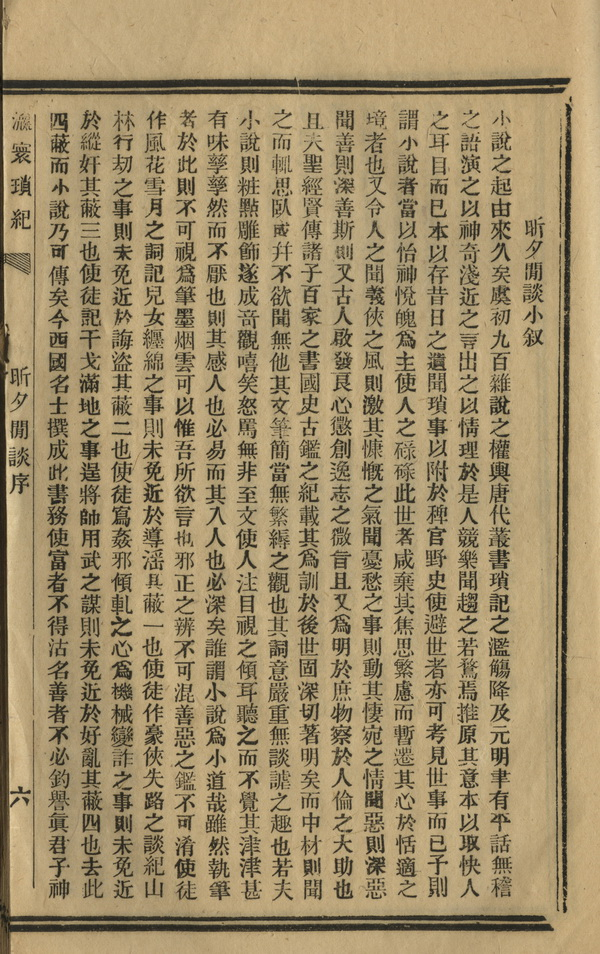 昕夕閒談小叙
小說之起由來久矣虞初九百雜說之權輿唐代叢書瑣記之濫觴降及元明聿有平話無稽
之語演之以神奇淺近之言出之以情理於是人競樂聞趨之若鶩焉推原其意本以取快人
之耳目而已本以存昔日之遺聞瑣事以附於稗官野史使避世者亦可考見世事而已予則
謂小說者當以怡神悅魄爲主使人之碌碌此世者咸棄其焦思繁慮而暫遷其心於恬適之
境者也又令人之聞義俠之風則激其慷慨之氣聞憂愁之事則動其悽宛之情聞惡則深惡
聞善則深善斯則又古人啟發良心懲創逸志之微旨且又爲明於庶物察於人倫之大助也
且夫聖經賢傳諸子百家之書國史古鑑之紀載其爲訓於後世固深切著明矣而中材則聞
之而輒思臥或幷不欲聞無他其文筆簡當無繁縟之觀也其詞意嚴重無談謔之趣也若夫
小說則粧點雕飾遂成奇觀嘻笑怒罵無非至文使人注目視之傾耳聽之而不覺其津津甚
有味孳孳然而不厭也則其感人也必易而其入人也必深矣誰謂小說爲小道哉雖然執筆
者於此則不可視爲筆墨烟雲可以惟吾所欲言也邪正之辨不可混善惡之鑑不可淆使徒
作風花雪月之詞記兒女纏綿之事則未免近於導淫其蔽一也使徒作豪俠失路之談紀山
林行刼之事則未免近於誨盜其蔽二也使徒寫姦邪傾軋之心爲機械變詐之事則未免近
於縱奸其蔽三也使徒記干戈滿地之事逞將帥用武之謀則未免近於好亂其蔽四也去此
四蔽而小說乃可傳矣今西國名士撰成此書務使富者不得沽名善者不必釣譽眞君子神
瀛寰瑣紀
昕夕閒談序
六